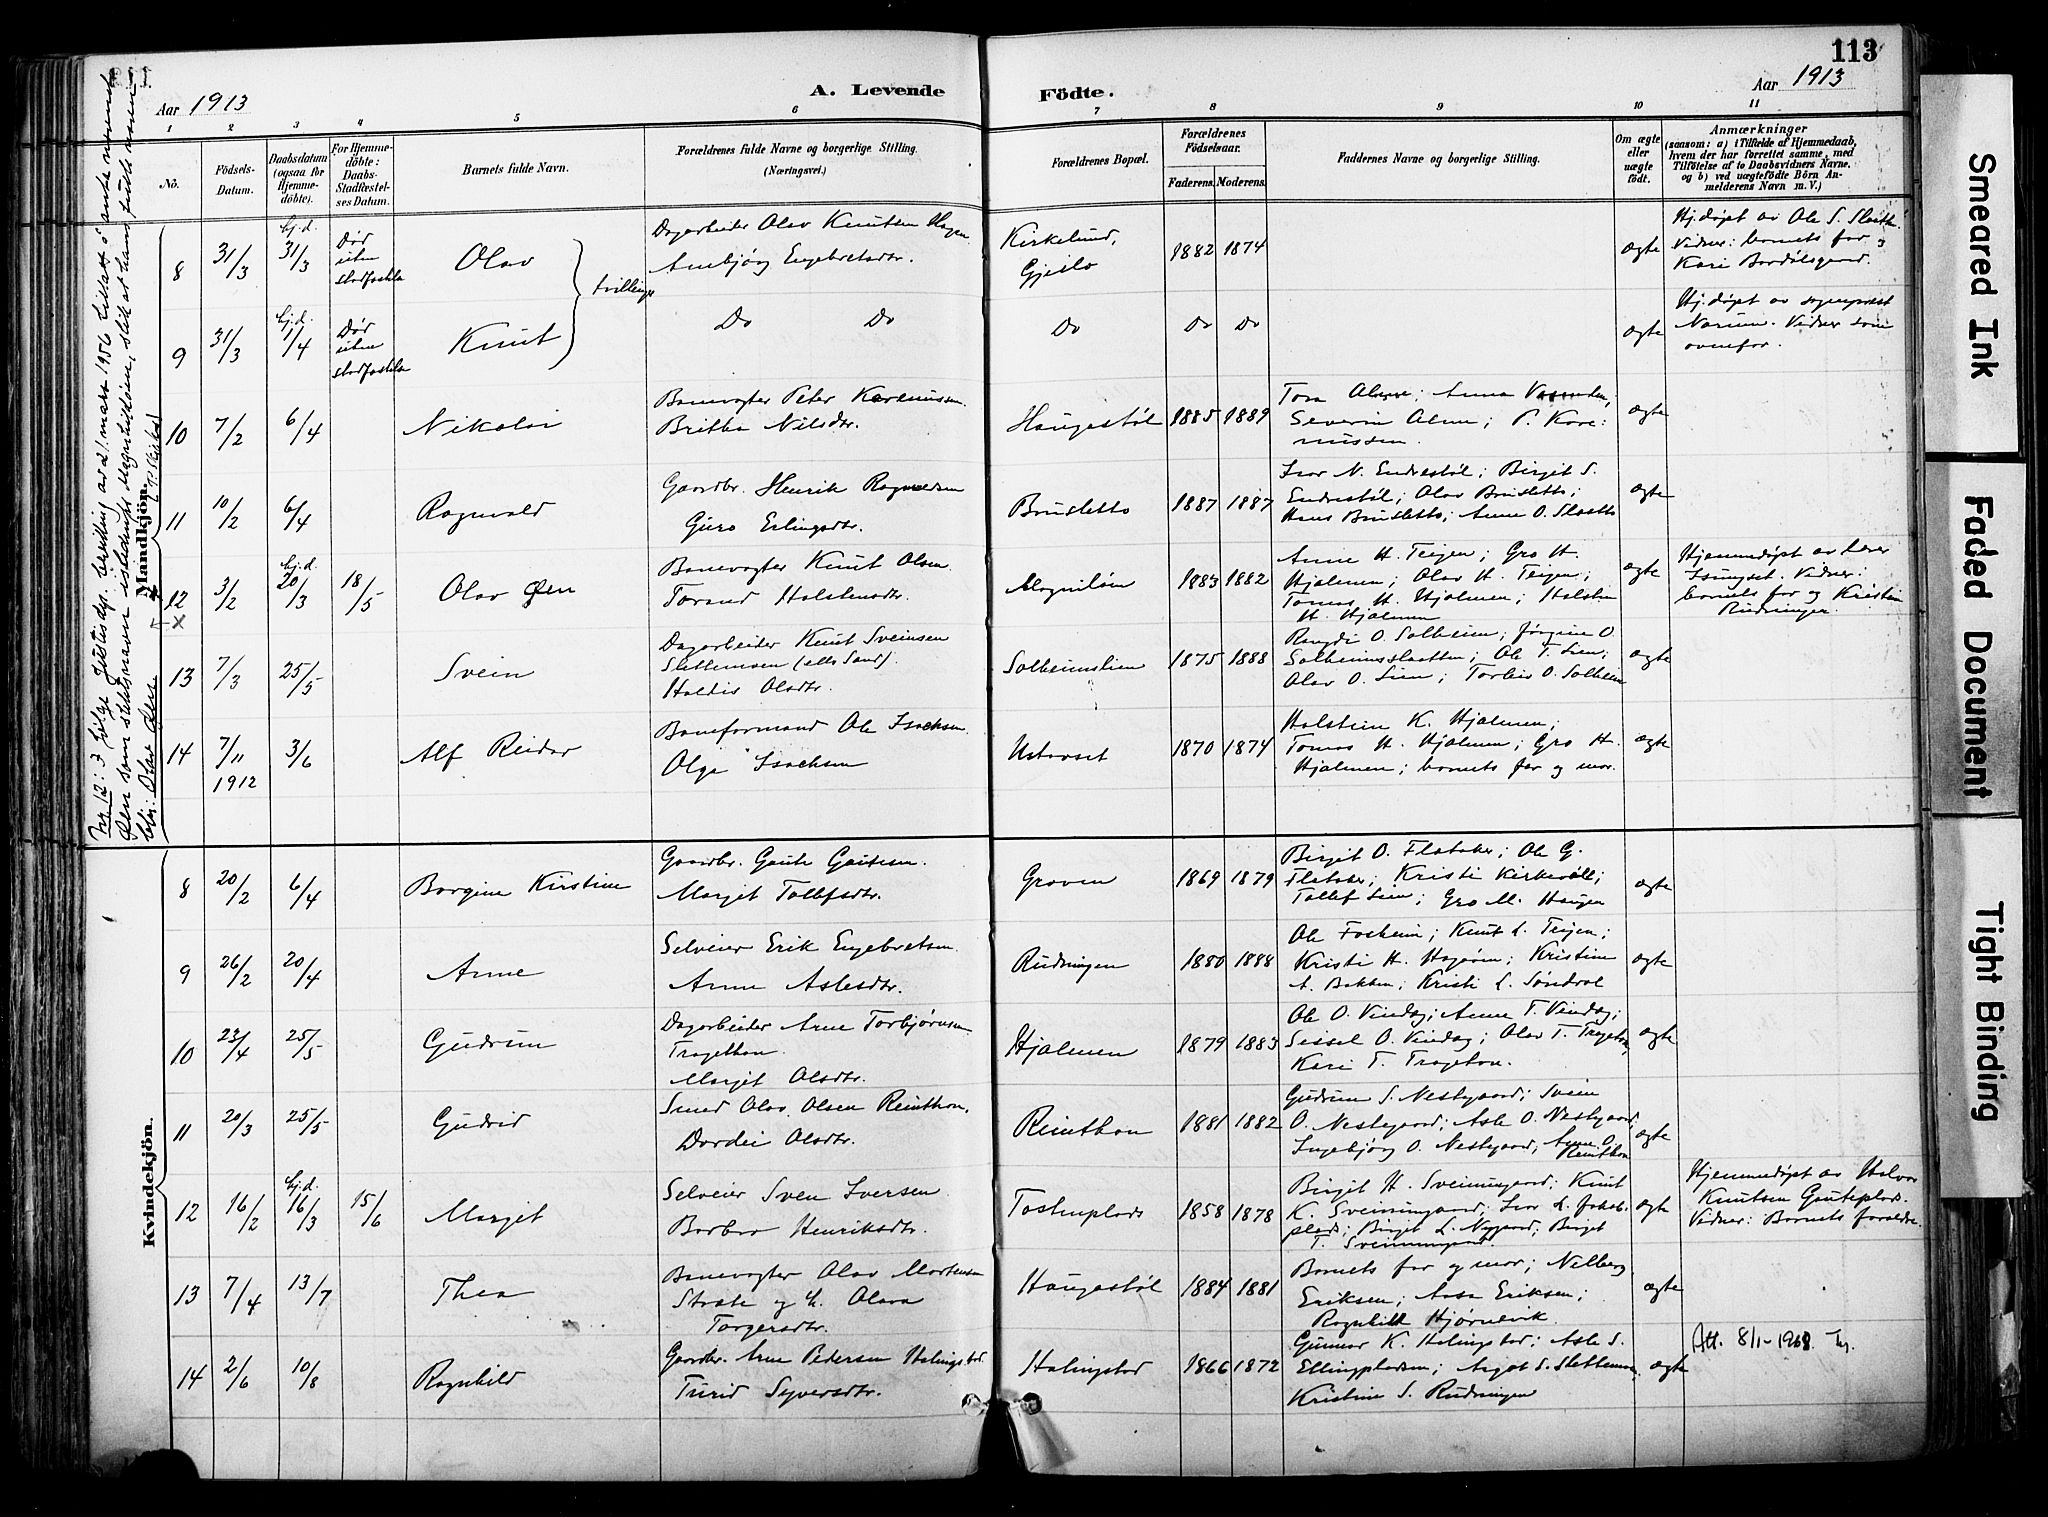 113
Aar 1913
A. Levende
Födte.
Aar 1913
1 2 3 4 5 6 7 8 9 10 11
No.
Födsels-Datum.
Daabsdatum (ogsaa for Hjemme-döbte).
For Hjemme-döbte: Daabs-Stadfæstel-ses Datum.
Barnets fulde Navn.
Forældrenes fulde Navne og borgerlige Stilling. (Næringsvei.)
Forældrenes Bopæl.
Forældrenes Födselsaar.
Faderens. Moderens.
Faddernes Navne og borgerlige Stilling.
Om ægte eller uægte födt.
Anmærkninger
(saasom: a) i Tilfælde af Hjemmedaab, hvem der har forrettet samme, med Tilföielse af to Daabsvidners Navne, og b) ved uægtefödte Börn An-melderens Navn m. V.)
Mandkjön.
8 31/3 hj.d. 31/3 Död uten stadfæstelse Olav tvillinger
Dagarbeider Olav Knutsen Hagen
Ambjörg Engebretsdtr.
Kirkelund, Gjeilo 1882 1874 ægte
Hj.döpt av Ole S. Slaatte.
Vidner: barnets far og
Kari Bardölsgard.
9 31/3 hj.d. 1/4 Död uten stadfæstelse Knut
Do Do Do Do Do ægte
Hj.döpt av sogneprest
Narum. Vidner som
ovenfor.
10 7/2 6/4 Nikolai
Banevogter Peter Karenussen
Britha Nilsdtr.
Haugestöl 1885 1889
Severin Alme; P. Kare-
nussen.
ægte
11 10/2 6/4 Ragnvald
Gaardbr. Henrik Ragnvaldsen
Guro Erlingsdtr.
Brusletto 1887 1887
Ivar N. Endrestöl; Birgit S.
Endrestöl; Olav Brusletto;
Hans Brusletto; Anne O. Slaatto
ægte
12 3/2 hj.d. 20/3 18/5 Olav Øen
Banevogter Knut Olsen
Torand Halstensdtr.
Magnilöen 1883 1882
Anne H. Teigen; Gro H.
Hjalmen; Olav H. Teigen;
Tomas H. Hjalmen; Halstein
H. Hjalmen
ægte
Hjemmedöpt av lærer
Isungset. Vidner:
barnets far og Kristin
Rudningen.
13 7/3 25/5 Svein
Dagarbeider Knut Sveinsen
Slettemoen (ells Sand).
Haldis Olsdtr.
Solheimslien 1875 1888
Rangdi O. Solheim; Jörgine O.
Solheimsslaatten; Ole T. Lien;
Olav O. Lien; Torbjör O. Solheim
ægte
14 7/11 1912 3/6 Alf Reidar
Baneformand Ole Isachsen
Olga Isachsen
Ustaoset 1870 1874
Halstein K. Hjalmen;
Tomas H. Hjalmen; Gro H.
Hjalmen; barnets far og mor.
ægte
Kvindekjön.
8 20/2 6/4 Borgine Kirstine
Gaardbr. Gaute Gautesen.
Margit Tollefsdtr.
Groven 1869 1879
Birgit O. Flataker; Ole G.
Flataker; Kristi Kirkevöll;
Tollef Lien; Gro M. Haugen
ægte
9 26/2 20/4 Anne
Selveier Erik Engebretsen.
Anne Aslesdtr.
Rudningen 1880 1888
Ole Foshein; Knut L. Teigen;
Kristi H. Hagaöen; Kristine
A. Bakken; Kristi L. Söndrol
ægte
10 23/4 25/5 Gudrun
Dagarbeider Arne Torbjörnsen
Tragethon.
Margit Olsdtr.
Hjalmen 1879 1883
Ole O. Vindag; Anne T. Vindag;
Sissel O. Vindag; Olav T. Trageton,
Kari T. Trageton.
ægte
11 20/3 25/5 Gudrid
Smed Olav Olsen Reinthon.
Dordei Olsdtr.
Reinthon 1881 1882
Gudrun S. Nestegaard; Svein
O. Nestegaard; Asle O. Nestegaard;
Ingebjörg O. Nestegaard; Anne O.
Reinthon
ægte
12 16/2 hj.d. 16/3 15/6 Margit
Selveier Sven Iversen
Barbro Henriksdtr.
Tostenplads 1858 1878
Birgit H. Sveinungaard; Knut
K. Sveinungaard; Ivar L. Jakobs-
plads; Birgit L. Nygaard; Birgit
T. Sveinungaard.
ægte
Hjemmedöpt av Halvor
Knutsen Gauteplads.
Vidner: Barnets foreldre.
13 7/4 13/7 Thea
Banevogter Olav Mortensen
Strate og h. Olava
Torgersdtr.
Haugestöl 1884 1881
Barnets far og mor; Nelberg
Eriksen; Aasa Eriksen;
Ragnhild Hjörnevik.
ægte
14 2/6 10/8 Ragnhild
Gaardbr. Arne Pedersen Halingstad.
Turid Syversdtr.
Halingstad 1866 1872
Gunnar K. Halingstad; Asle S.
Ellingpladsen; Aagot S. Slettemoen,
Kristine S. Rudningen
ægte
Att. 8/1-1968
Nr. 12: I følge Justisdep. bevilling av 21. mars 1956 tillatt å anta navnet
Øen som slektsnavn istedenfor Magnilöen, slik at hans fulle navn
blir: Olav Øen.
Smeared Ink
Faded Document
Tight Binding